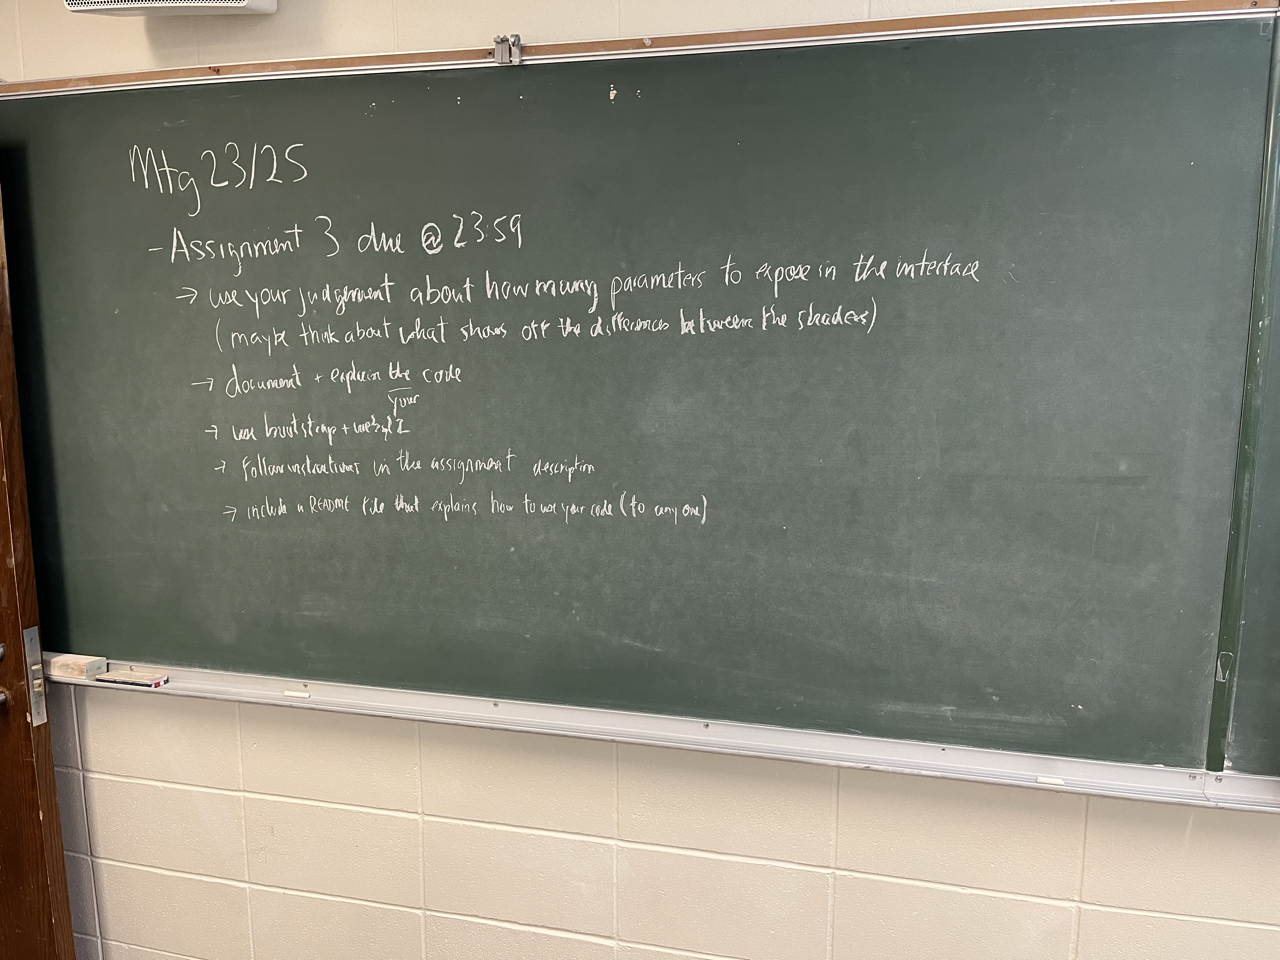 Mtg 23/25
- Assignment 3 due @ 23:59
→ use your judgement about how many parameters to expose in the interface
(maybe think about what shows off the differences between the shaders)
→ document + explain the code
your
→ use bootstrap + webgl
→ follow instructions in the assignment description
→ include a README file that explains how to use your code (to anyone)